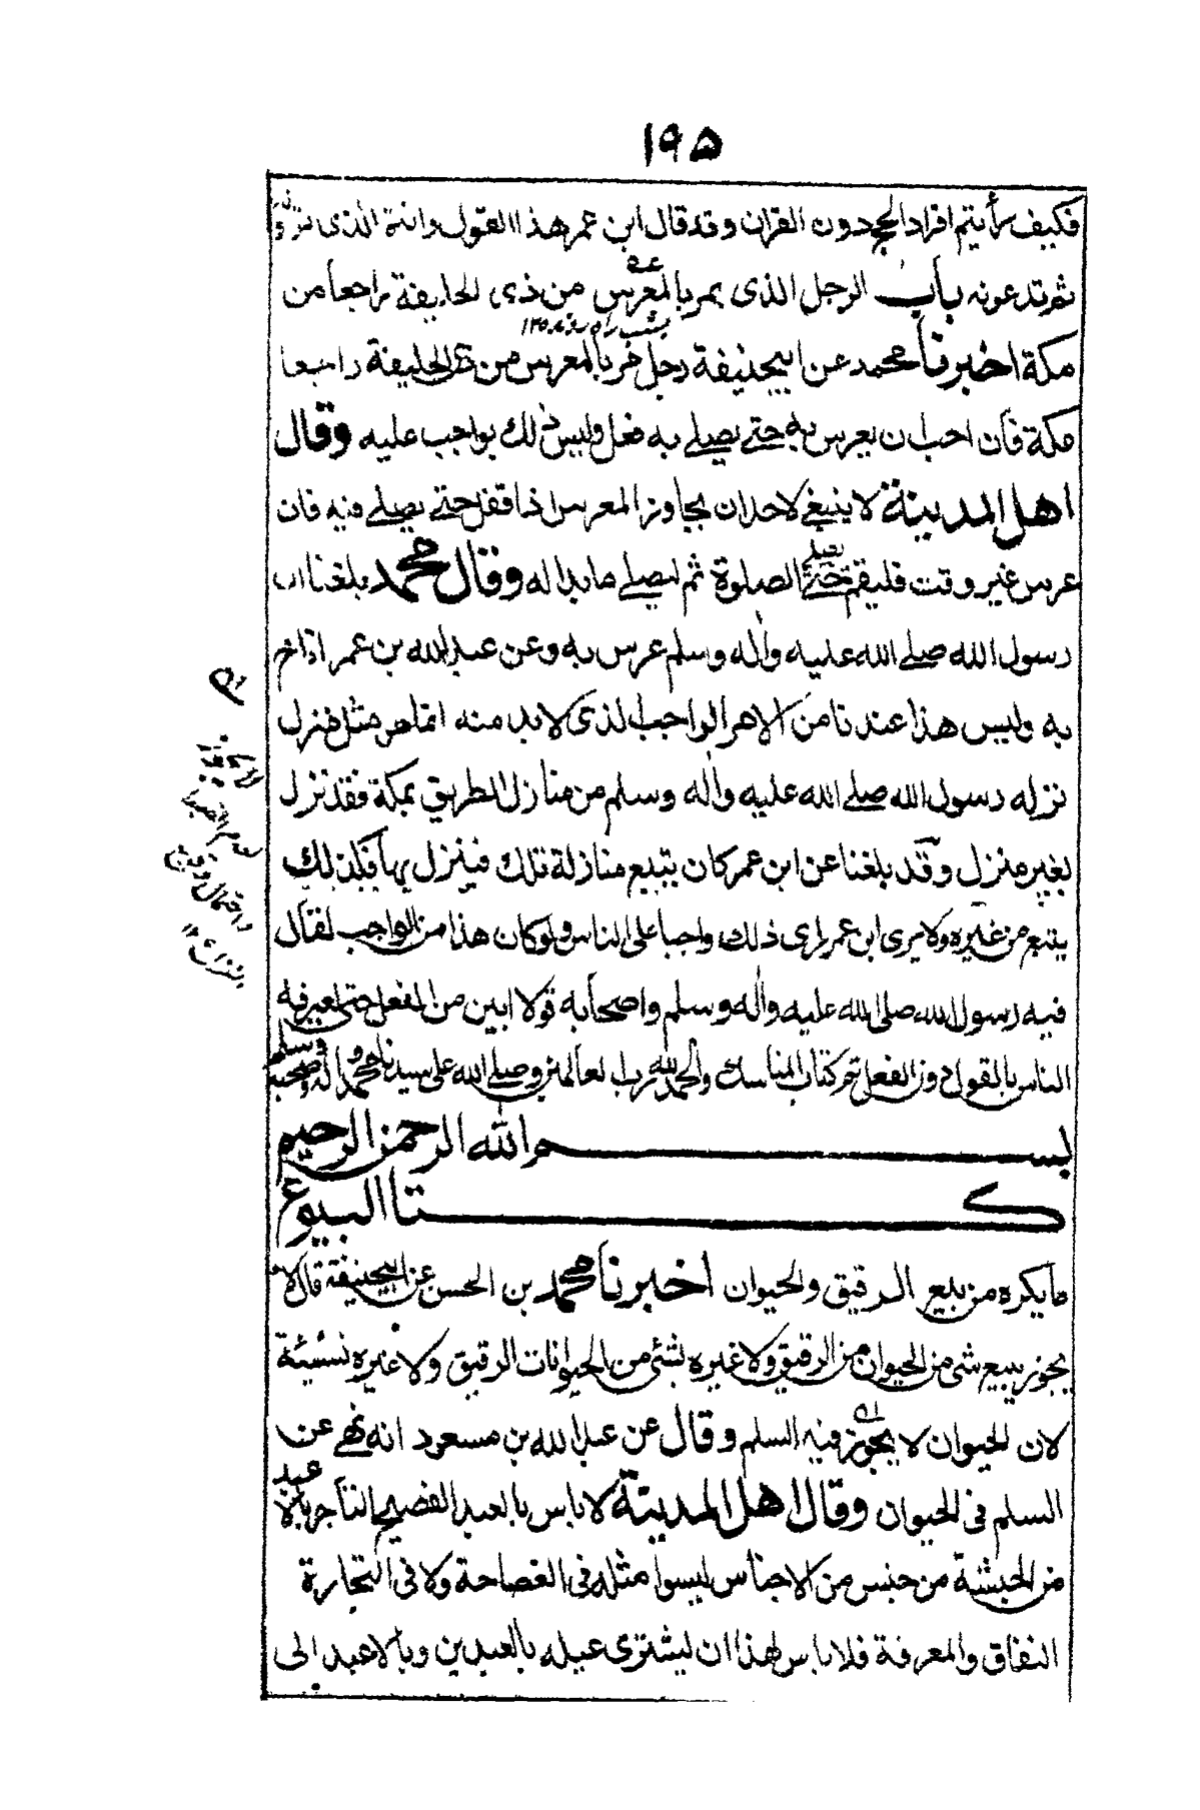 ١٩٥
فكيف رأيتم افراد الحج دون القران وقد قال ابن عمر هذا القول وانتم الذى
ثم تدعونه باب الرجل الذى يمر بالمعرس من ذى الحليفة راجعا من
مكة اخبرنا محمد عن ابيحنيفة رجل مر بالمعرس من ذى الحليفة راجعا
مكة فان احب ان يعرس به حتى يصلى به فعل وليس ذلك بواجب عليه وقال
اهل المدينة لا ينبغى لاحد ان يجاوز المعرس اذا قفل حتى يصلى فيه فان
عرس غير وقت فليقم حتى الصلوة ثم ليصلى ما بدا له وقال محمد بلغنا ان
رسول الله صلى الله عليه واله وسلم عرس به وعن عبد الله بن عمر اناخ
به وليس هذا عندنا من الامر الواجب الذى لا بد منه انما هو مثل منزل
نزله رسول الله صلى الله عليه واله وسلم من منازل الطريق بمكة فقد نزل
بغير منزل وقد بلغنا عن ابن عمر كان يتبع منازله تلك فينزل بها فكذلك
يتبع من غيره ولا يرى ابن عمر يارى ذلك واجبا على الناس ولو كان هذا من الواجب لقال
فيه رسول الله صلى الله عليه واله وسلم واصحابه قولا ابين من الفعل حتى لعرفه
الناس بالقول دون الفعل تم كتاب المناسك والحمد لله رب العالمين وصلى الله على سيدنا محمد واله وصحبه وسلم
بسم الله الرحمن الرحيم
كتاب البيوع
ما يكره من بيع الرقيق والحيوان اخبرنا محمد بن الحسن عن ابيحنيفة قال لا
يجوز بيع شى من الحيوان من الرقيق ولا غيره بشئ من الحيوانات الرقيق ولا غيره نسيئة
لان الحيوان لا يجوز فيه السلم وقال عن عبد الله بن مسعود انه نهى عن
السلم فى الحيوان وقال اهل المدينة لا باس بالعبد الفصيح التاجر بالاعبد
من الحبشة من جنس من الاجناس ليسوا مثله فى الفصاحة ولا فى التجارة
النفاق والمعرفة فلا باس لهذا ان ليشترى عبيله بالعبدين وبالاعبد الى